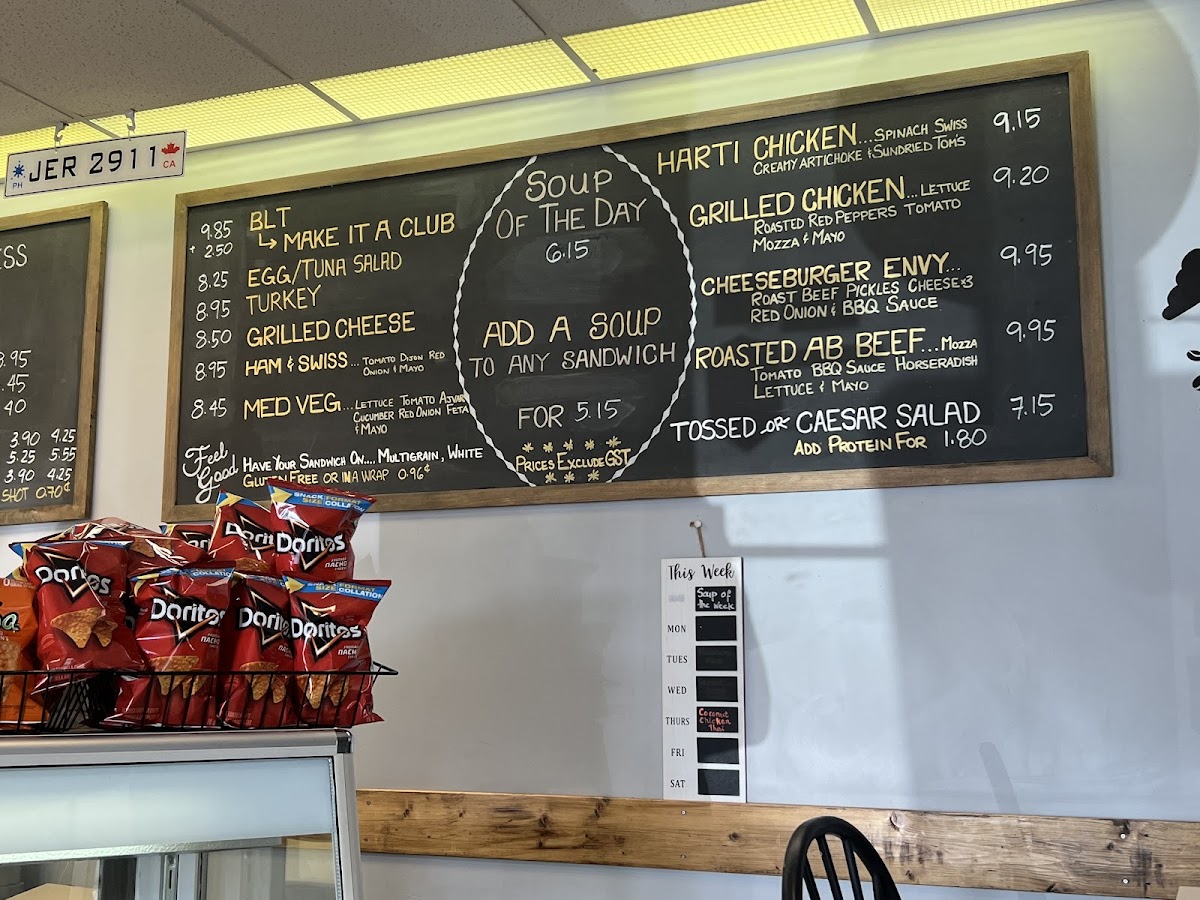 JER 2911
PH
CA
ESS
8.95
.45
40
3.90 4.25
5.25 5.55
3.90 4.25
SHOT 0.70¢
9.85 BLT
+ 2.50 ↳ MAKE IT A CLUB
8.25 EGG/TUNA SALAD
8.95 TURKEY
8.50 GRILLED CHEESE
8.95 HAM & SWISS... TOMATO DIJON RED
ONION & MAYO
8.45 MED VEG... LETTUCE TOMATO AJVAR
CUCUMBER RED ONION FETA
& MAYO
Feel
Good
HAVE YOUR SANDWICH ON.... MULTIGRAIN, WHITE
GLUTEN FREE OR IN A WRAP 0.96¢
SOUP
OF THE DAY
6.15
ADD A SOUP
TO ANY SANDWICH
FOR 5.15
PRICES EXCLUDE GST
HARTI CHICKEN...SPINACH SWISS 9.15
CREAMY ARTICHOKE & SUNDRIED TOM'S
GRILLED CHICKEN... LETTUCE 9.20
ROASTED RED PEPPERS TOMATO
MOZZA & MAYO
CHEESEBURGER ENVY... 9.95
ROAST BEEF PICKLES CHEESE
RED ONION & BBQ SAUCE
ROASTED AB BEEF...MOZZA 9.95
TOMATO BBQ SAUCE HORSERADISH
LETTUCE & MAYO
TOSSED OR CAESAR SALAD 7.15
ADD PROTEIN FOR 1.80
This Week
Soup of
the week
MON
TUES
WED
THURS
Coconut
Chicken
Thai
FRI
SAT
SNACK FORMAT
SIZE COLLATION
Doritos
Doritos
NACHO
Doritos
Doritos
NACHO
Doritos
SNACK FORMAT
SIZE COLLATION
Doritos
NACHO